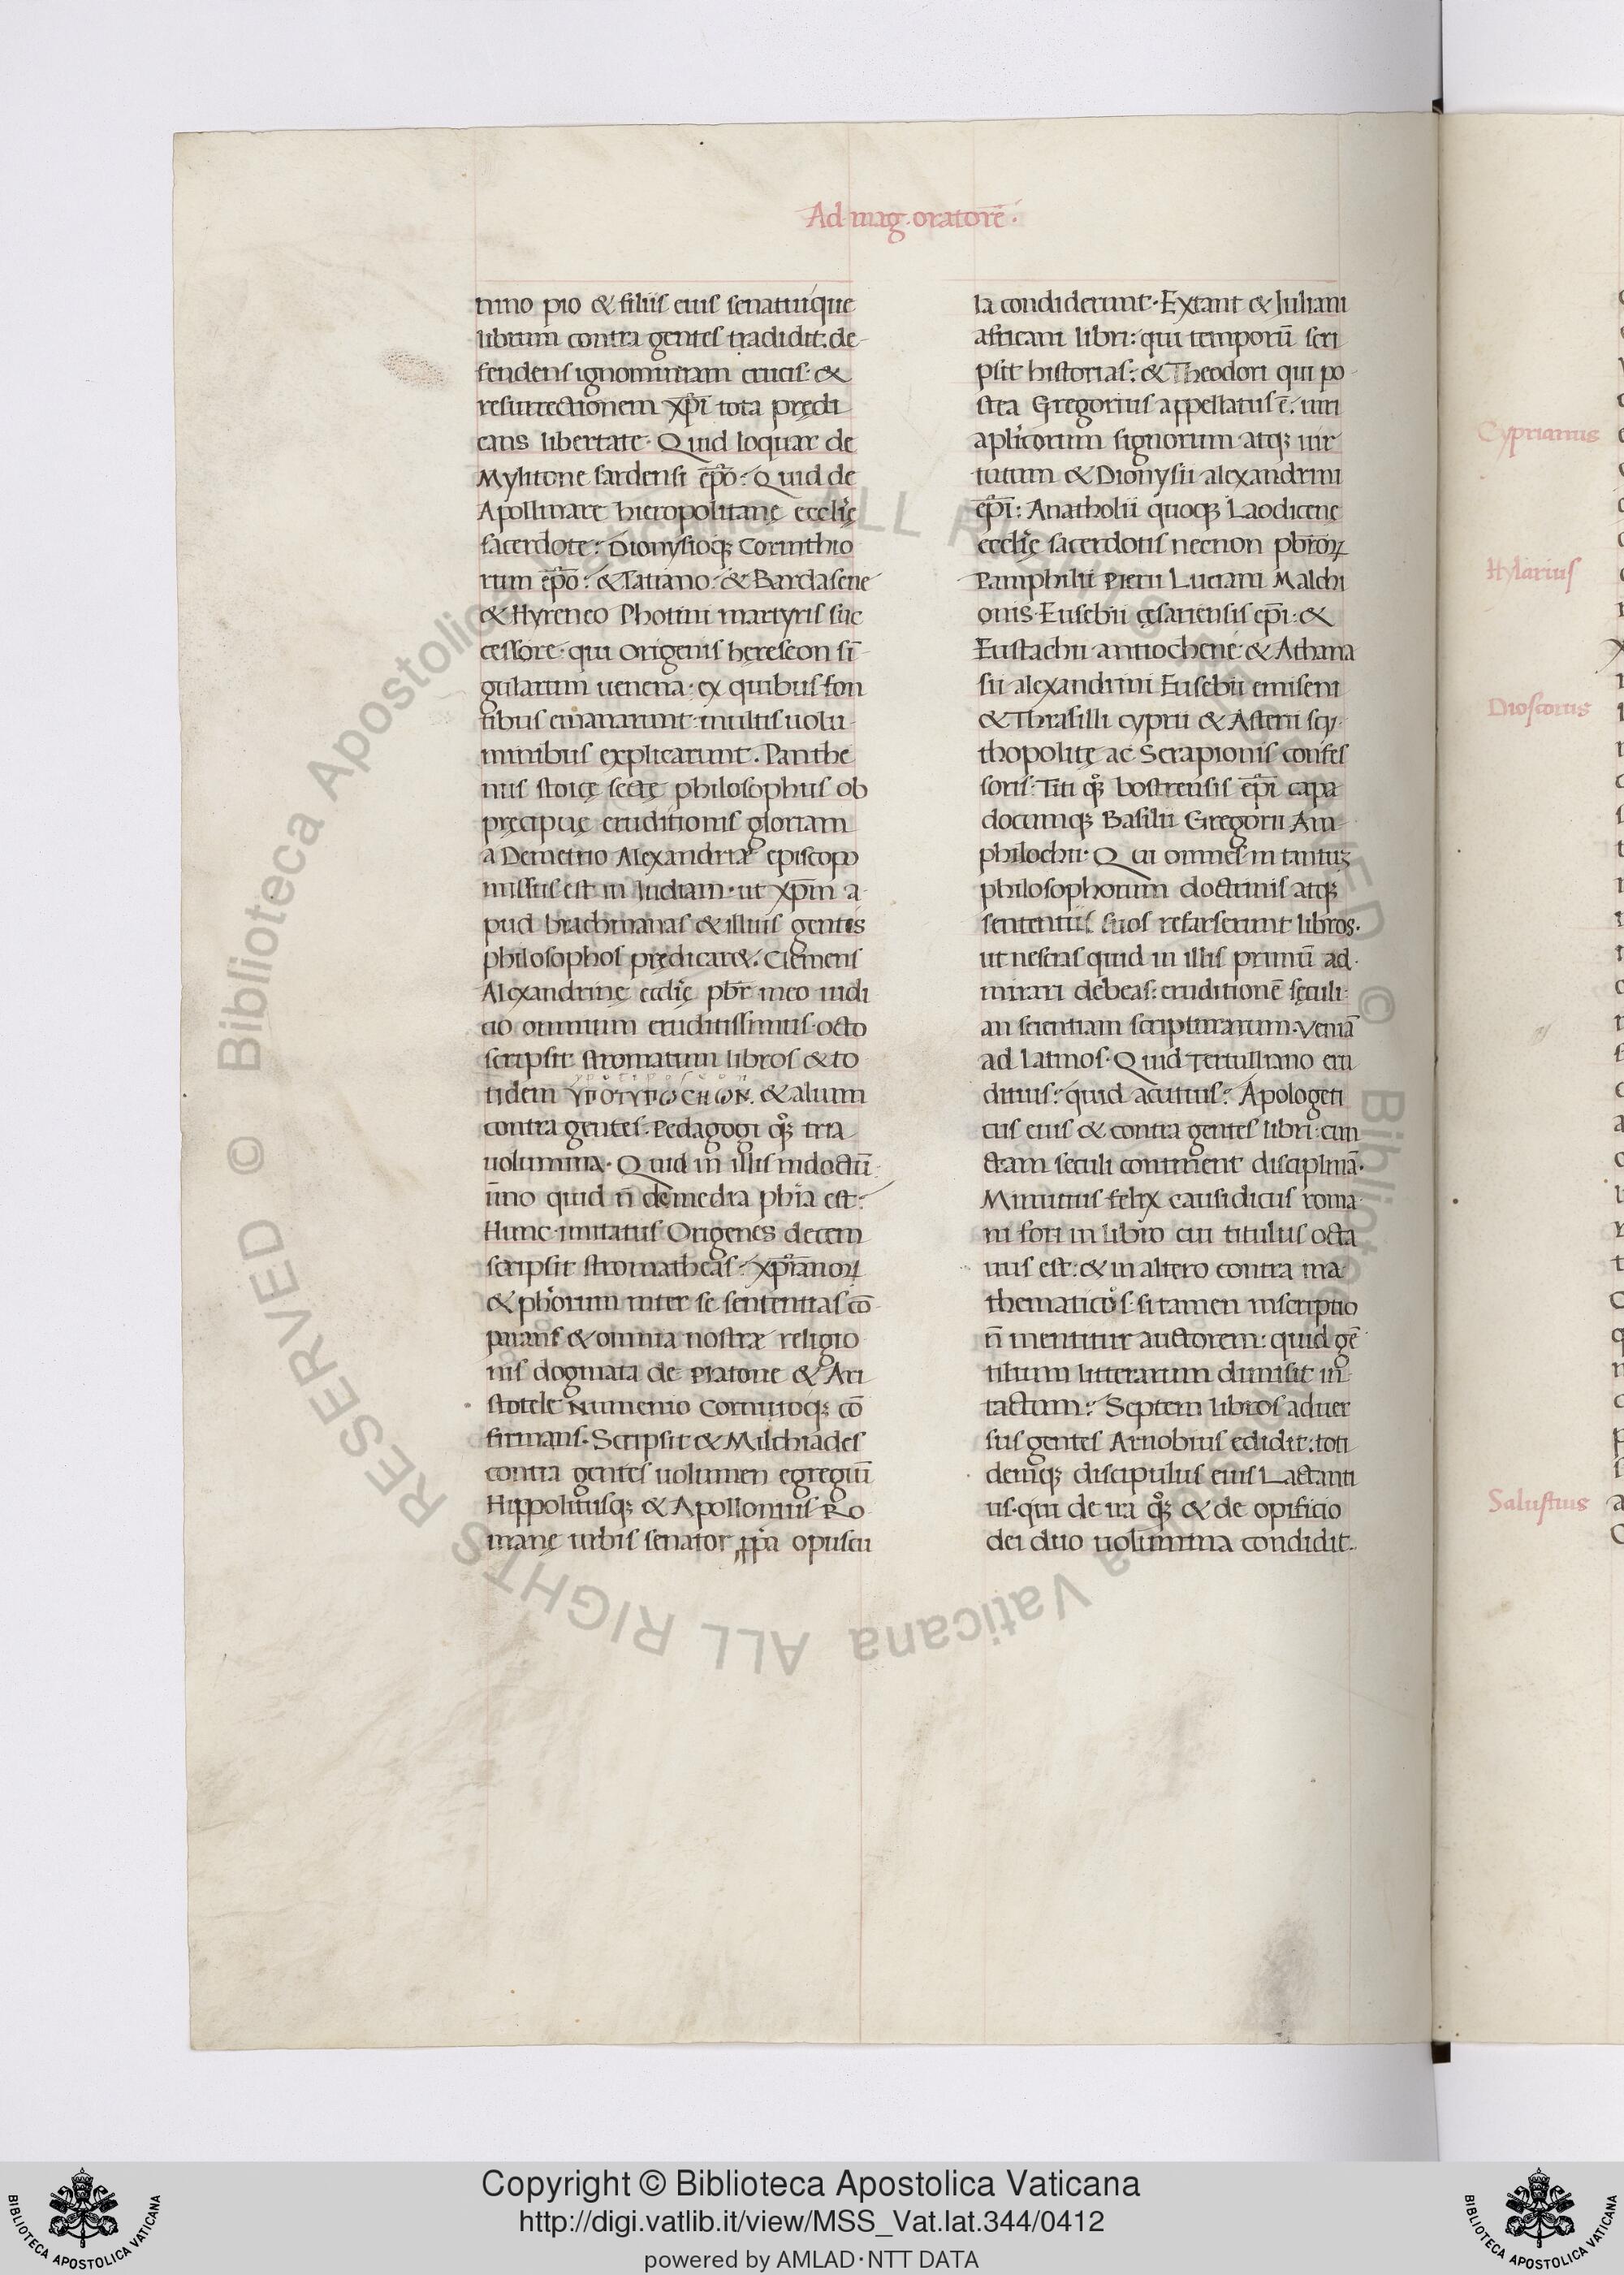 Ad mag. oratorē.
nino pio & filiis eius senatuique
librum contra gentes tradidit: de
fendens ignominiam crucis: &
resurrectionem xp̄i tota prędi
cans libertate. Quid loquar de
Mylitone sardensi ep̄o: Quid de
Apollinare hieropolitanę ecclię
sacerdote: Dionysioq; Corinthio
rum ep̄o: & Tatiano: & Bardasene
& Hyreneo Photini martyris suc
cessore: qui Origenis hereseon sī
gularum uenena: ex quibus fon
tibus emanarunt: multis uolu
minibus explicarunt. Panthe
nus stoicę sectę philosophus ob
pręcipuę eruditionis gloriam
a Demetrio Alexandriæ episcopo
missus est in Indiam: ut xp̄m a
pud brachmanas & illius gentis
philosophos prędicar&. Clemens
Alexandrinę ecclię pbr̄ meo iudi
cio omnium eruditissimus: octo
scripsit stromatum libros & to
tidem ΥΠΟΤΥΠΩCΗΩΝ. & alium
contra gentes. Pedagogi q°; tria
uolumina. Quid in illis indoctū:
īmo quid n̄ de media phia est:
Hunc imitatus Origenes decem
scripsit stromatheas: xp̄ianoꝝ
& phorum inter se sententias cō
parans & omnia nostræ religio
nis dogmata de Platone & Ari
stotele Numenio Cornutoq; cō
firmans. Scripsit & Milchiades
contra gentes uolumen egregiū
Hippolitusq; & Apollonius Ro
manę urbis senator ꝓpa opuscu
la condiderunt. Extant & Iuliani
africani libri: qui temporū scri
psit historias: & Theodori qui po
stea Gregorius appellatus ē. uiri
aplicorum signorum atq; uir
tutum & Dionysii alexandrini
ep̄i: Anatholii quoq; Laodicenę
ecclię sacerdotis necnon pbr̄oꝝ
Pamphilii Pierii Luciani Malchi
onis. Eusebii cęsariensis ep̄i: &
Eustachii antiocheni: & Athana
sii alexandrini Eusebii emiseni
& Thrasilli cyprii & Asterii scy
thopolitę ac Serapionis confes
soris: Titi q°; bostrensis ep̄i capa
documq; Basilii Gregorii Am
philochii. Qui omnes in tantuȝ
philosophorum doctrinis atq;
sententiis suos refarserunt libros.
ut nescias quid in illis primū ad
mirari debeas: eruditionē sęculi:
an scientiam scripturarum. Veniā
ad latinos. Quid Tertulliano eru
ditius: quid acutius: Apologeti
cus eius & contra gentes libri: cun
ctam seculi continent disciplinā.
Minutius felix causidicus roma
ni fori in libro cui titulus octa
uius est: & in altero contra ma
thematicos: si tamen inscriptio
n̄ mentitur auctorem: quid gē
tilium litterarum dimisit in
tactum: Septem libros aduer
sus gentes Arnobius edidit: toti
demq; discipulus eius Lactanti
us. qui de ira q°; & de opificio
dei duo uolumina condidit.
Cyprianus
Hylarius
Dioscorus
Salustius
© Biblioteca Apostolica Vaticana ALL RIGHTS RESERVED
Copyright © Biblioteca Apostolica Vaticana
http://digi.vatlib.it/view/MSS_Vat.lat.344/0412
powered by AMLAD·NTT DATA
BIBLIOTECA APOSTOLICA VATICANA
BIBLIOTECA APOSTOLICA VATICANA